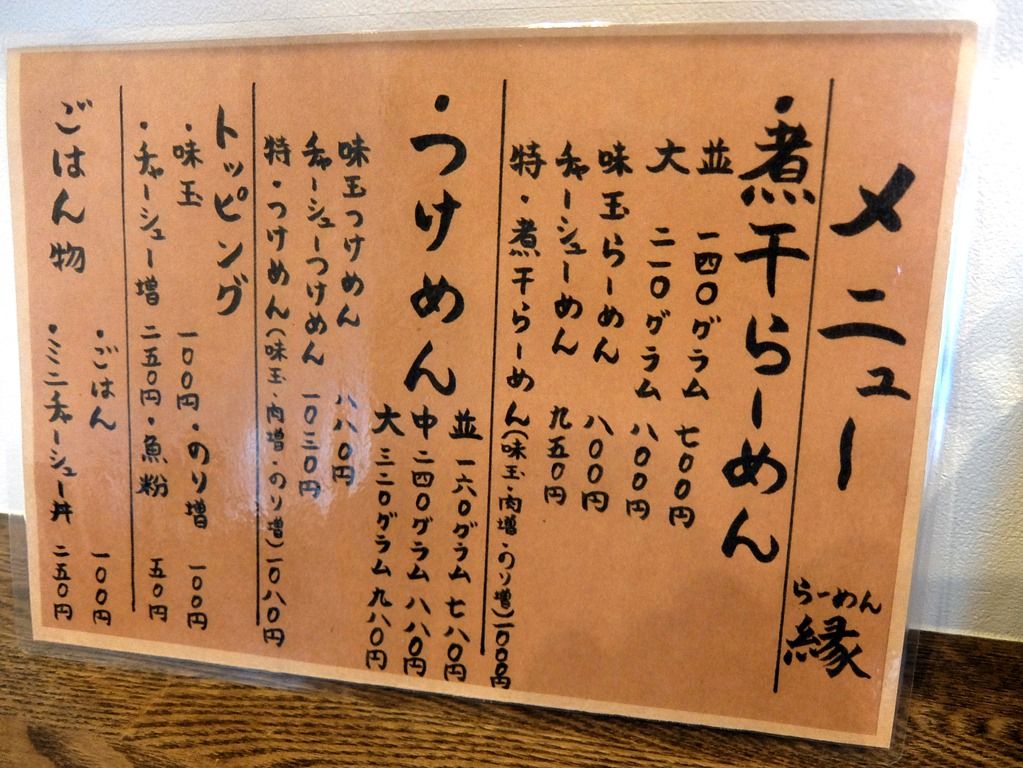 メニュー
らーめん
縁
・煮干らーめん
並 一四〇グラム 七〇〇円
大 二一〇グラム 八〇〇円
味玉らーめん 八〇〇円
チャーシューめん 九五〇円
特・煮干らーめん(味玉・肉増・のり増)一〇〇〇円
・つけめん
並 一六〇グラム 七八〇円
中 二四〇グラム 八八〇円
大 三二〇グラム 九八〇円
味玉つけめん 八八〇円
チャーシューつけめん 一〇三〇円
特・つけめん(味玉・肉増・のり増)一〇八〇円
トッピング
・味玉 一〇〇円・のり増 一〇〇円
・チャーシュー増 二五〇円・魚粉 五〇円
ごはん物
・ごはん 一〇〇円
・ミニチャーシュー丼 二五〇円